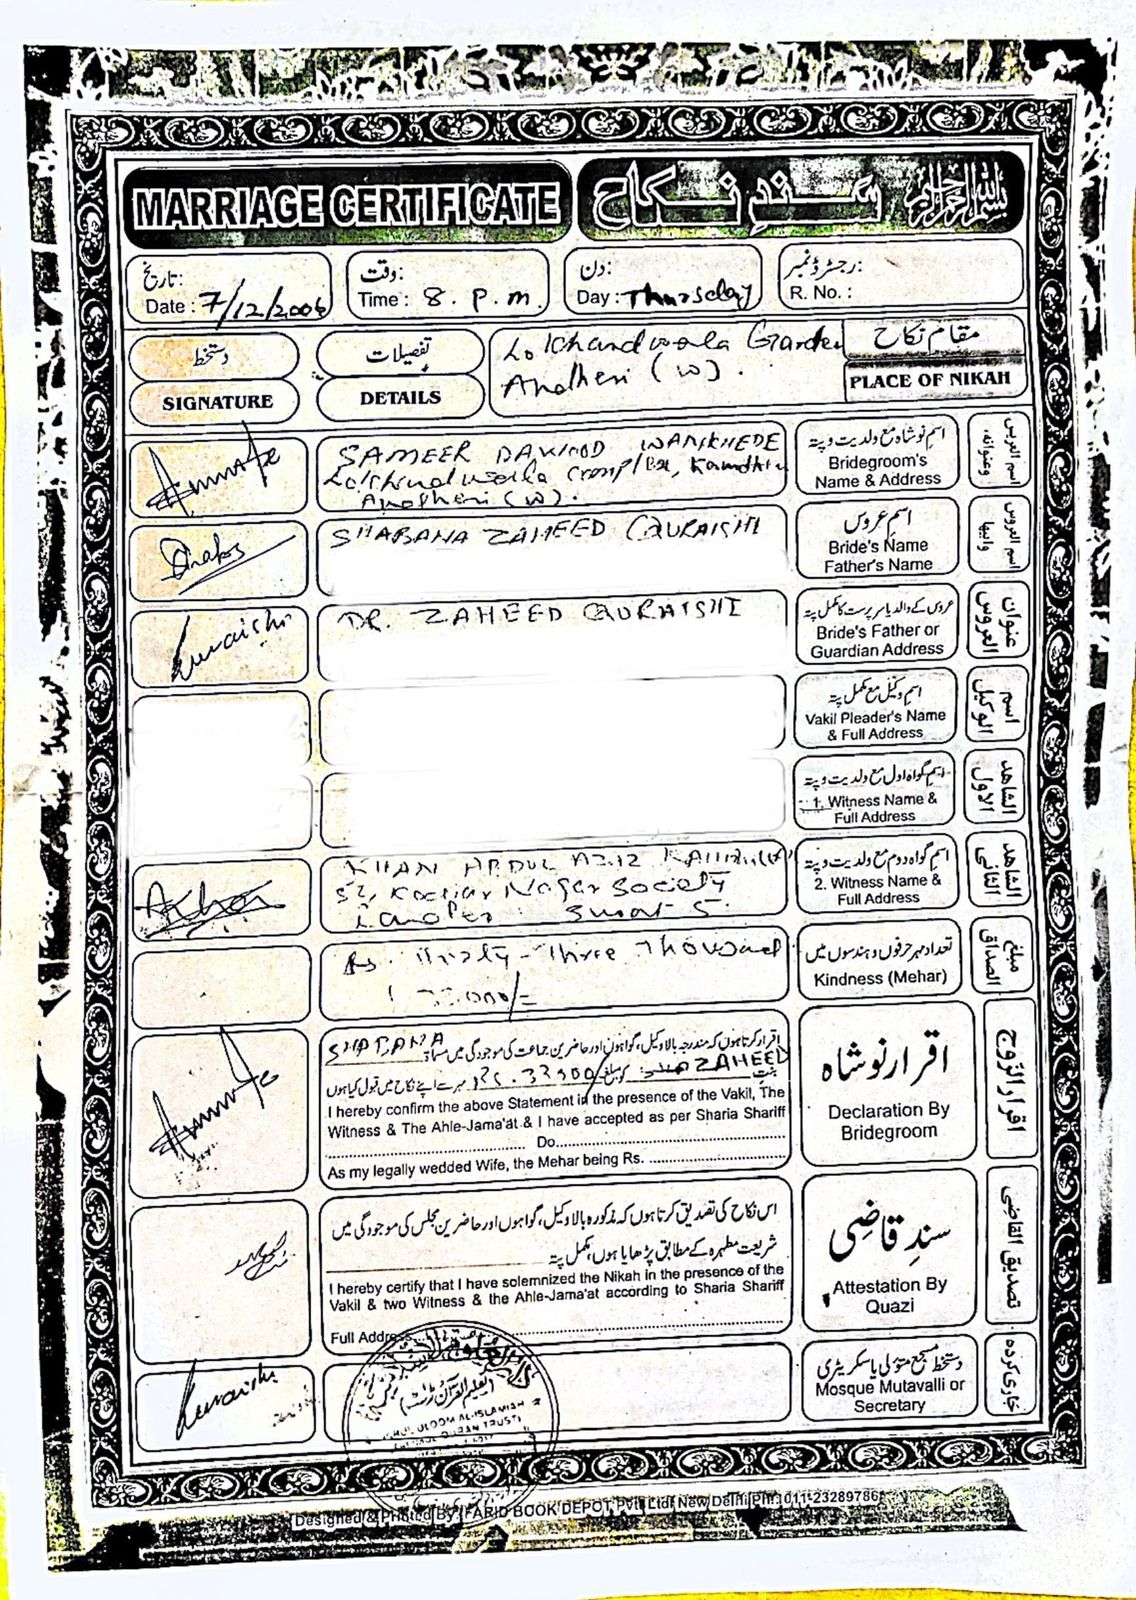 MARRIAGE CERTIFICATE
سندِ نکاح
بسم اللہ الرحمن الرحیم
تاریخ:
Date : 7/12/2006
وقت:
Time : 8. P.m.
دن:
Day : Thursday
رجسٹرڈ نمبر:
R. No. :
دستخط
SIGNATURE
تفصیلات
DETAILS
Lokhandwala Garden
Andheri (W).
مقام نکاح
PLACE OF NIKAH
SAMEER DAWOOD WANKHEDE
Lokhandwala Complex,
Andheri (W).
اسم نوشاہ مع ولدیت و پتہ
Bridegroom's
Name & Address
SHABANA ZAHEED QURAISHI
اسم عروس
Bride's Name
Father's Name
DR. ZAHEED QURAISHI
عروس کے والد یا سرپرست کا مکمل پتہ
Bride's Father or
Guardian Address
عنوان العروس
اسم وکیل مع مکمل پتہ
Vakil Pleader's Name
& Full Address
اسم الوکیل
اسم گواہ اول مع ولدیت و پتہ
1. Witness Name &
Full Address
الشاھد الاول
KHAN ABDUL AZIZ
Nagar Society
Surat 5.
اسم گواہ دوم مع ولدیت و پتہ
2. Witness Name &
Full Address
الشاھد الثانی
Rs. Thirty-Three Thousand
33,000/=
تعداد مہر حرفوں و ہندسوں میں
Kindness (Mehar)
مبلغ الصداق
SHABANA
اقرار کرتا ہوں کہ مندرجہ بالا وکیل، گواہوں اور حاضرین جماعت کی موجودگی میں مسماۃ
ZAHEED
بنت کو مبلغ Rs. 33000/ مہر سے اپنے نکاح میں قبول کیا ہوں
I hereby confirm the above Statement in the presence of the Vakil, The
Witness & The Ahle-Jama'at & I have accepted as per Sharia Shariff
Do
As my legally wedded Wife, the Mehar being Rs.
اقرار نوشاہ
Declaration By
Bridegroom
اقرار الزوج
اس نکاح کی تصدیق کرتا ہوں کہ مذکورہ بالا وکیل، گواہوں اور حاضرین مجلس کی موجودگی میں
شریعت مطہرہ کے مطابق پڑھایا ہوں، مکمل پتہ
I hereby certify that I have solemnized the Nikah in the presence of the
Vakil & two Witness & the Ahle-Jama'at according to Sharia Shariff
Full Address
سندِ قاضی
Attestation By
Quazi
تصدیق القاضی
دستخط مسجد متولی یا سکریٹری
Mosque Mutavalli or
Secretary
جاری کردہ
Designed & Printed By: FARID BOOK DEPOT Pvt. Ltd. New Delhi Ph.: 011-23289786